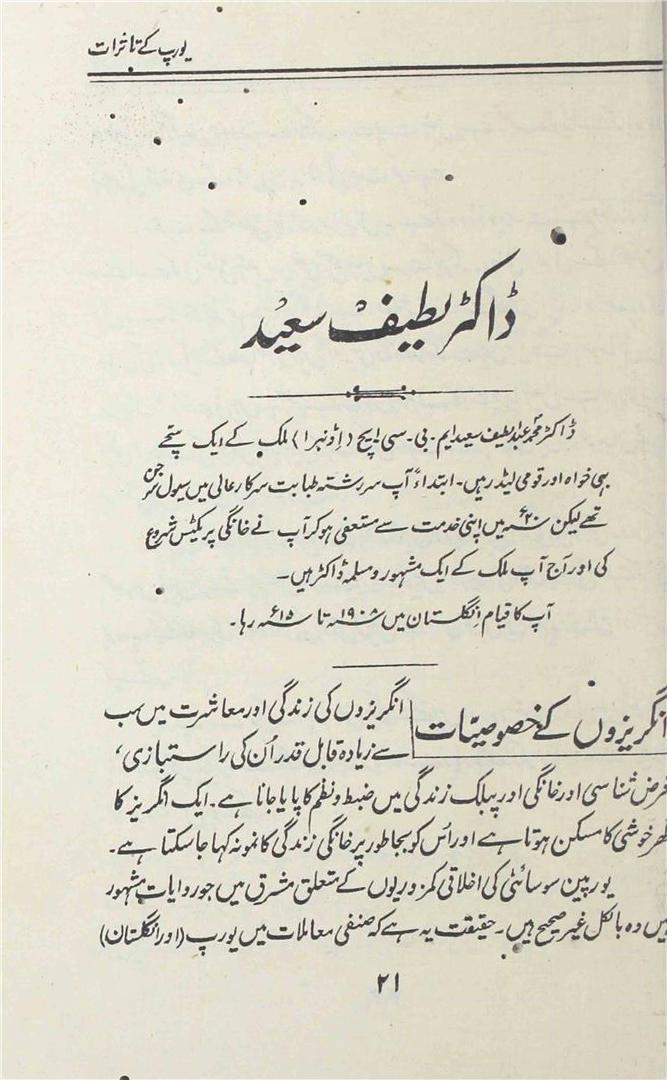 یورپ کے تاثرات
ڈاکٹر لطیف سعید
ڈاکٹر محمد عبد لطیف سعید ایم۔بی۔سی ایچ (اڈنبرا) ملک کے ایک سچے
بہی خواہ اور قومی لیڈر ہیں۔ ابتداءً آپ سررشتہ طبابت سرکار عالی میں سیول سرجن
تھے لیکن ۲۰ء میں اپنی خدمت سے مستعفی ہوکر آپ نے خانگی پریکٹس شروع
کی اور آج آپ ملک کے ایک مشہور و مسلمہ ڈاکٹر ہیں۔
آپ کا قیام انگلستان میں ۱۹۰۸ء تا ۱۵ء رہا۔
انگریزوں کے خصوصیّات
انگریزوں کی زندگی اور معاشرت میں سب
سے زیادہ قابل قدر اُن کی راستبازی،
فرض شناسی اور خانگی اور پبلک زندگی میں ضبط و نظم کا پایا جانا ہے۔ ایک انگریز کا
گھر خوشی کا مسکن ہوتا ہے اور اس کو بجا طور پر خانگی زندگی کا نمونہ کہا جا سکتا ہے۔
یورپین سوسائٹی کی اخلاقی کمزوریوں کے متعلق مشرق میں جو روایات مشہور
ہیں وہ بالکل غیر صحیح ہیں۔ حقیقت یہ ہے کہ صنفی معاملات میں یورپ (اور انگلستان)
۲۱